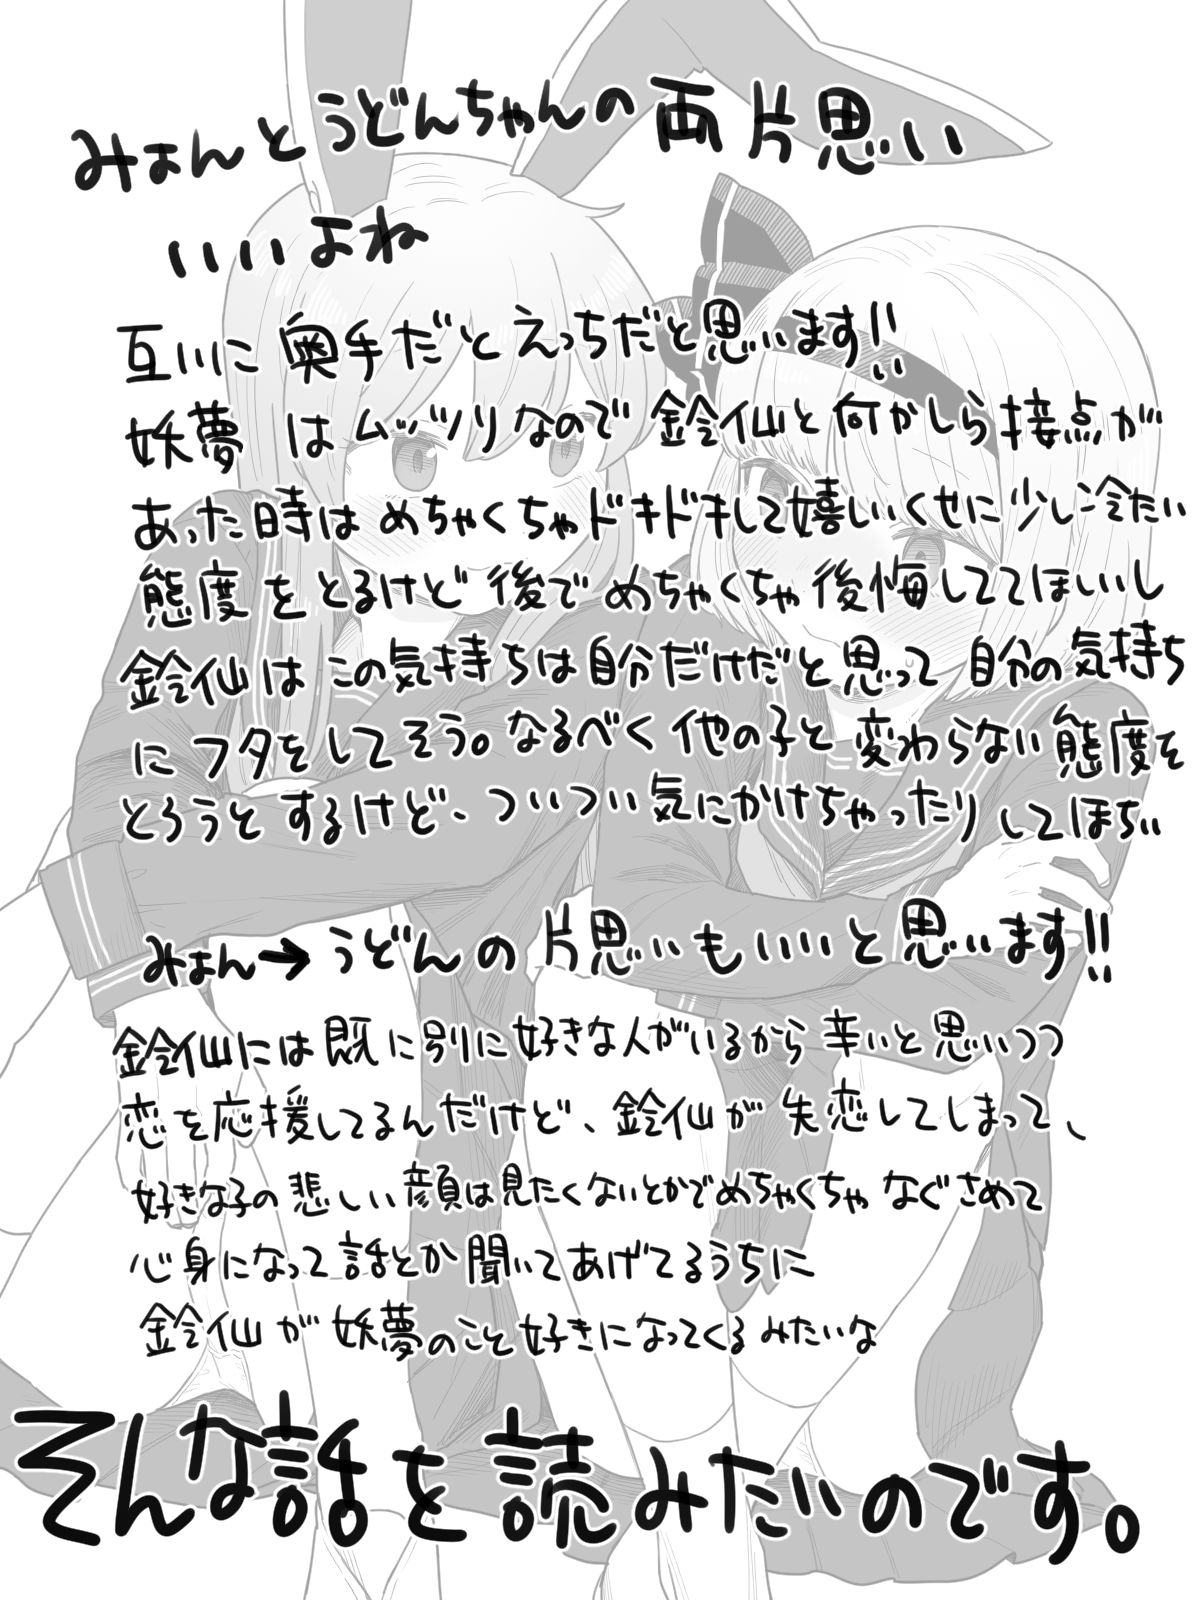 みょんとうどんちゃんの両片思い
いいよね
互いに奥手だとえっちだと思います!!
妖夢はムッツリなので鈴仙と何かしら接点が
あった時はめちゃくちゃドキドキして嬉しいくせに少し冷たい
態度をとるけど後でめちゃくちゃ後悔しててほしいし
鈴仙はこの気持ちは自分だけだと思って自分の気持ち
にフタをしてそう。なるべく他の子と変わらない態度を
とろうとするけど、ついつい気にかけちゃったりしてほぢい
みょん→うどんの片思いもいいと思います!!
鈴仙には既に別に好きな人がいるから辛いと思いつつ
恋を応援してるんだけど、鈴仙が失恋してしまって、
好きな子の悲しい顔は見たくないとかでめちゃくちゃなぐさめて
心身になって話とか聞いてあげてるうちに
鈴仙が妖夢のこと好きになってくるみたいな
そんな話を読みたいのです。